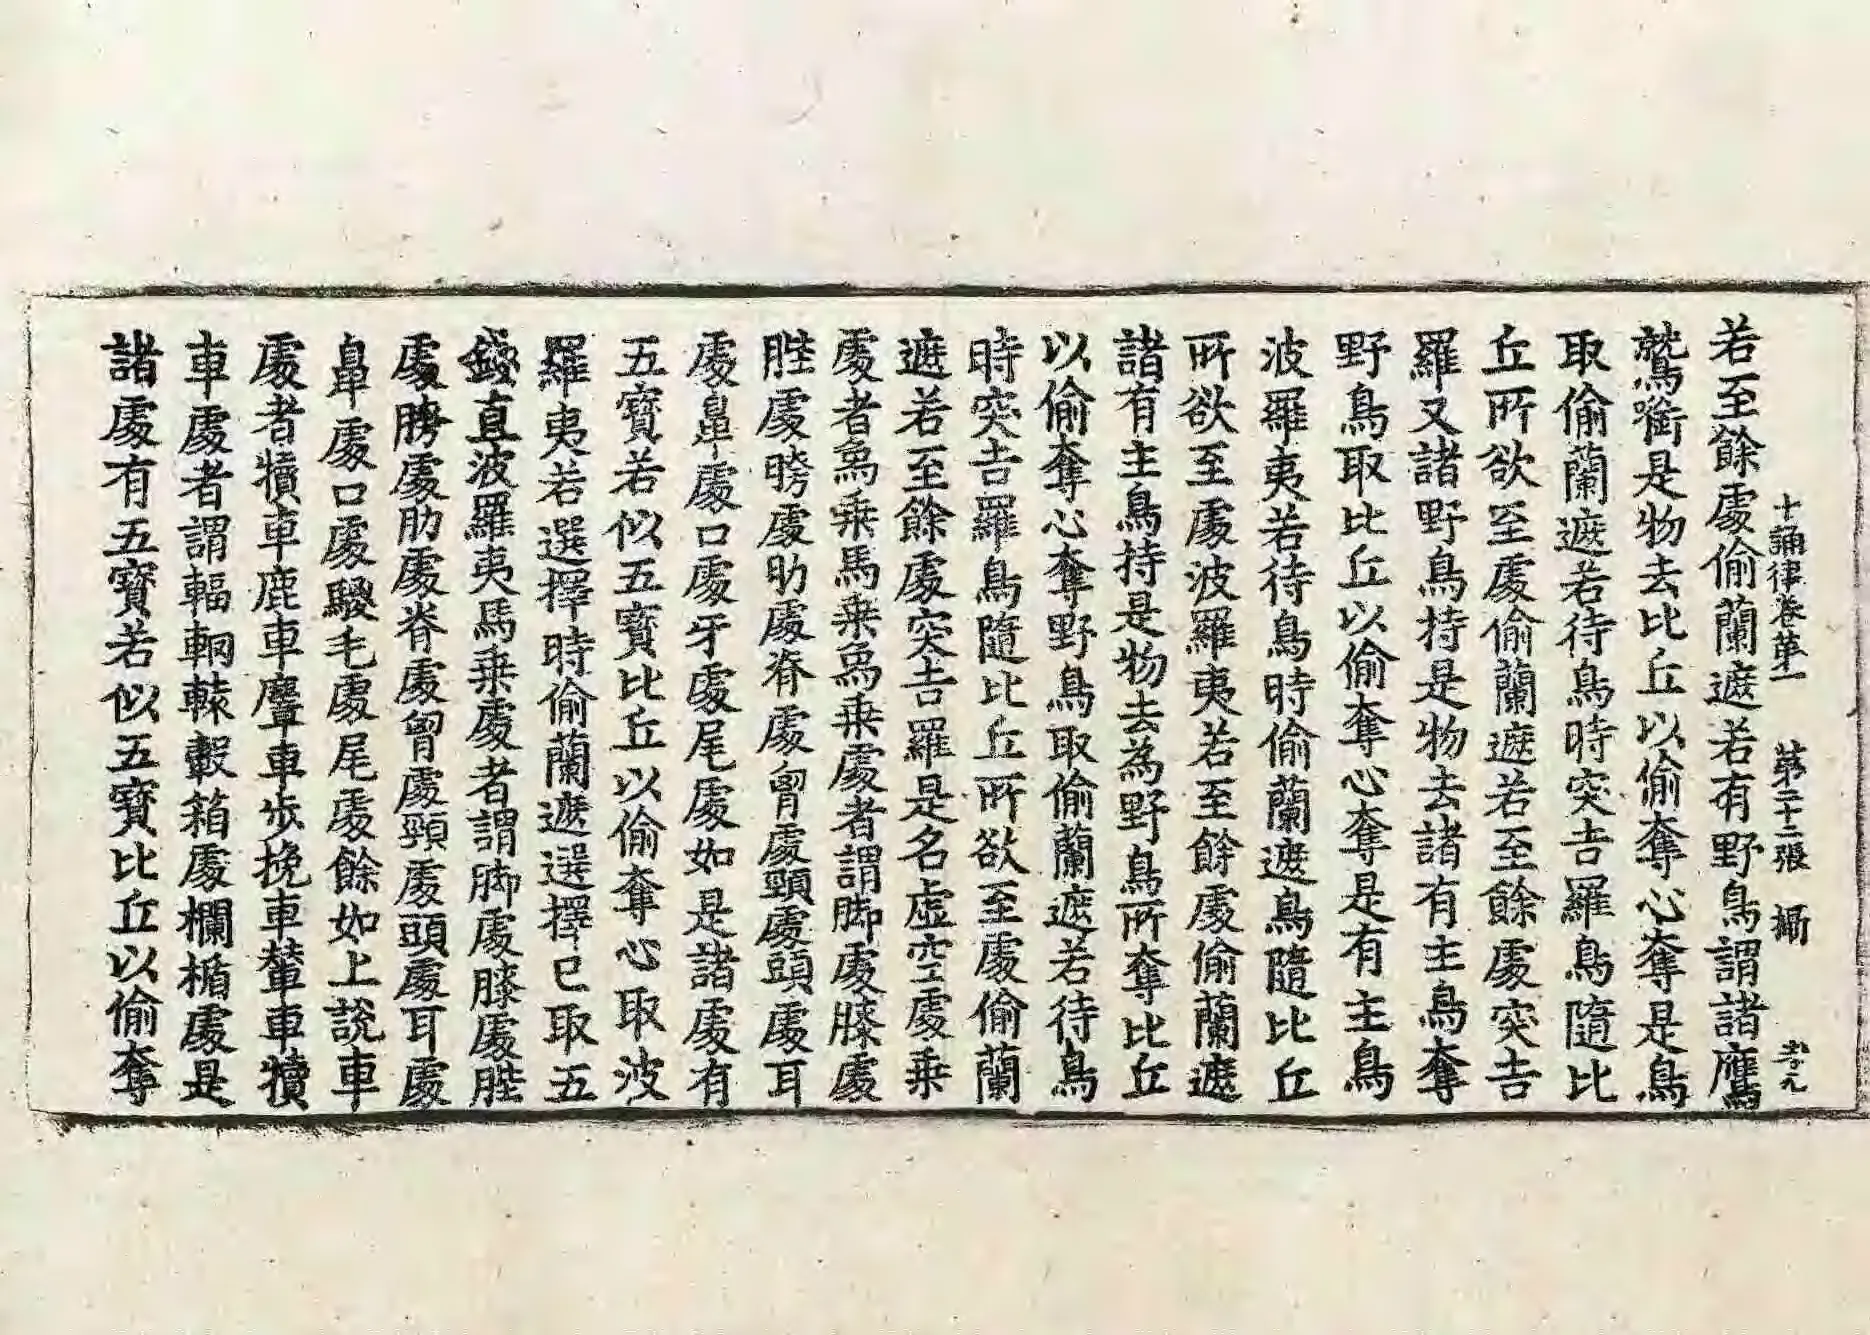 十誦律卷第一 第二十二張 攝
若至餘處偷蘭遮若有野鳥謂諸鷹
鷲銜是物去比丘以偷奪心奪是鳥
取偷蘭遮若待鳥時突吉羅鳥隨比
丘所欲至處偷蘭遮若至餘處突吉
羅又諸野鳥持是物去諸有主鳥奪
野鳥取比丘以偷奪心奪是有主鳥
波羅夷若待鳥時偷蘭遮鳥隨比丘
所欲至處波羅夷若至餘處偷蘭遮
諸有主鳥持是物去為野鳥所奪比丘
以偷奪心奪野鳥取偷蘭遮若待鳥
時突吉羅鳥隨比丘所欲至處偷蘭
遮若至餘處突吉羅是名虛空處乘
處者象乘馬乘象乘處者謂脚處膝處
䏶處髈處肋處脊處胷處頸處頭處耳
處鼻處口處牙處尾處如是諸處有
五寶若似五寶比丘以偷奪心取波
羅夷若選擇時偷蘭遮選擇已取五
錢直波羅夷馬乘處者謂脚處膝處䏶
處髈處肋處脊處胷處頸處頭處耳處
鼻處口處騣毛處尾處餘如上說車
處者犢車鹿車麞車步挽車輦車犢
車處者謂輻輞轅轂箱處欄楯處是
諸處有五寶若似五寶比丘以偷奪